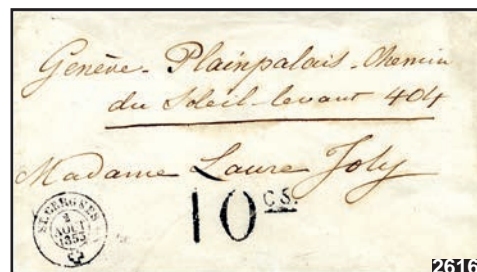 Genève - Plainpalais - Chemin
du Soleil-levant 404
Madame Laure Joly
10 CS.
ST. CERGUES
2
AOUT
1853
2616